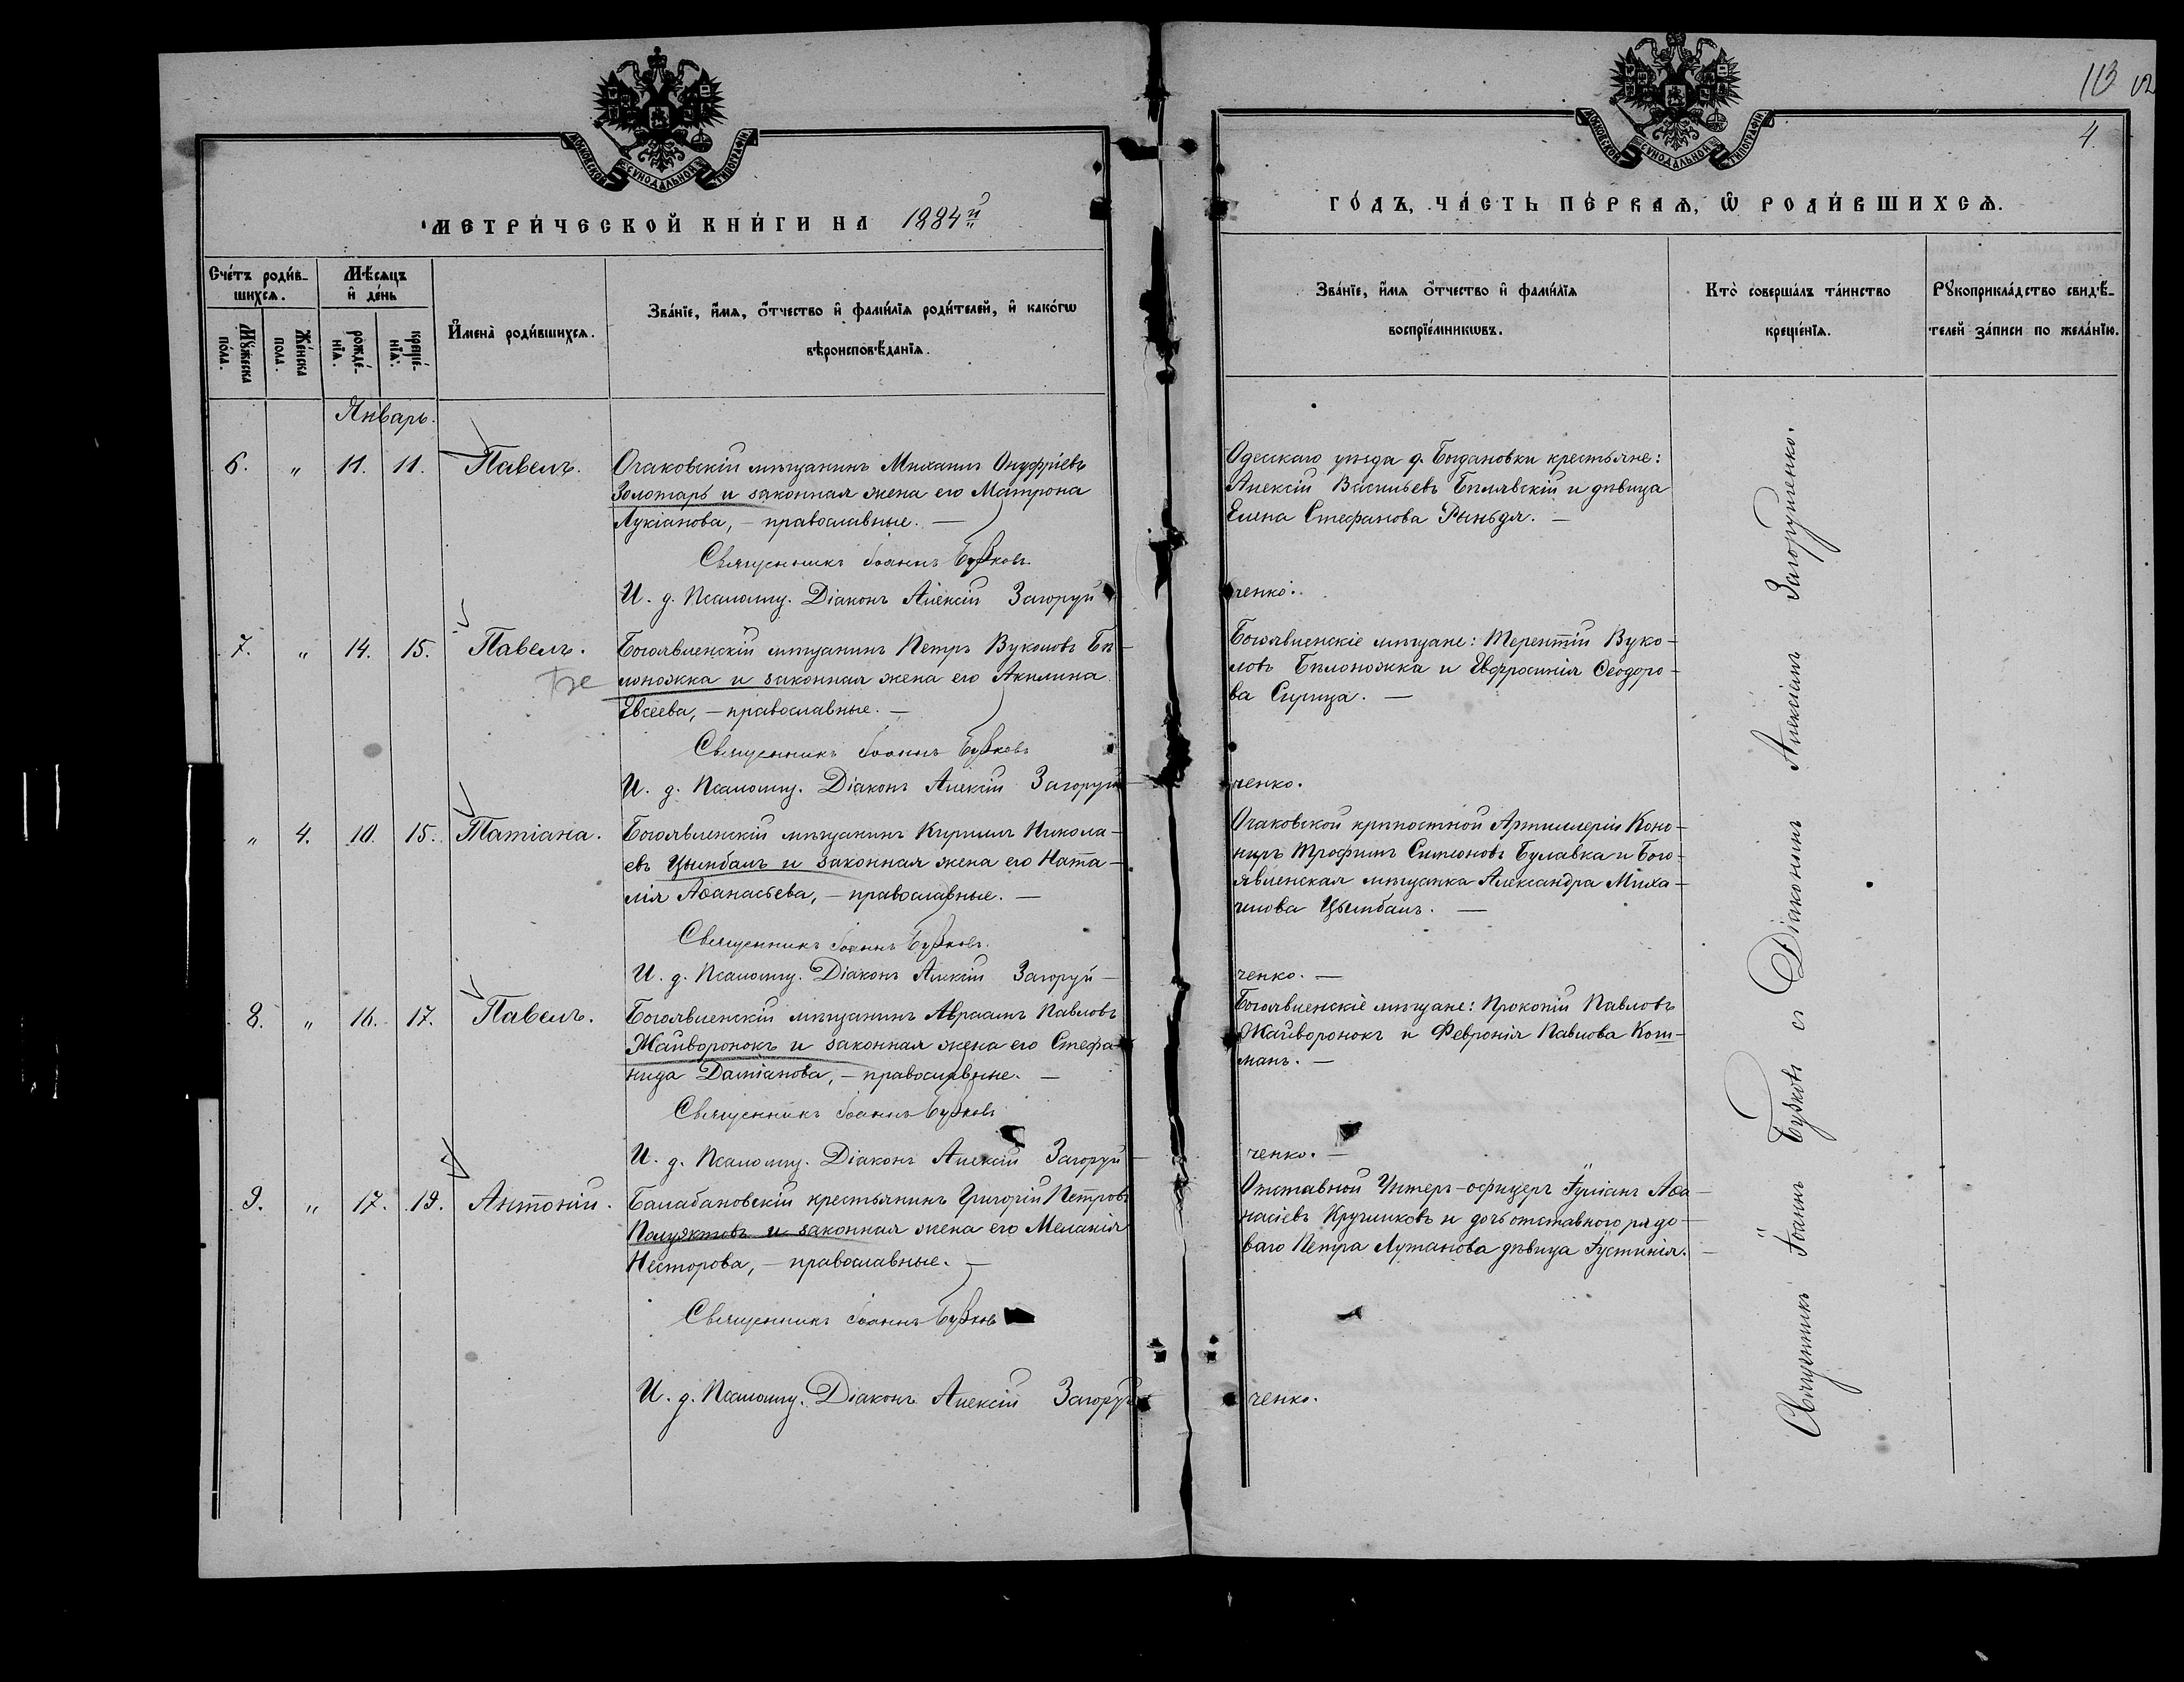 МОСКОВСКОЙ СУНОДАЛЬНОЙ ТИПОГРАФІИ
МОСКОВСКОЙ СУНОДАЛЬНОЙ ТИПОГРАФІИ
113
4.
МЕТРИ́ЧЕСКОЙ КНИ́ГИ НА 1884й
ГО́ДЪ, ЧА́СТЬ ПЕ́РВАѦ, Ѡ҆ РОДИ́ВШИХСѦ.
Сче́тъ роди́в-
шихсѧ.
Мѣ́сѧцъ
и҆ де́нь
Мꙋ́жеска
по́ла.
Же́нска
пола.
рожде́-
нїѧ.
креще́-
нїѧ.
И҆мена̀ роди́вшихсѧ.
Зва́нїе, и҆́мѧ, ѻ҆́тчество и҆ фами́лїѧ роди́телей, и҆ како́гѡ
вѣроисповѣ́данїѧ.
Зва́нїе, и҆́мѧ ѻ҆́тчество и҆ фами́лїѧ
воспрїе́мникѡвъ.
Кто̀ соверша́лъ та́инство
креще́нїѧ.
Рꙋкоприкла́дство свидѣ́-
телей за́писи по жела́нїю.
Январь.
6. " 11. 11. Павелъ. Очаковскій мѣщанинъ Михаилъ Онуфріевъ
Золотарь и законная жена его Матрона
Лукіанова, — православные. —
Священникъ Іоаннъ Бубковъ.
И. д. Псаломщ. Діаконъ Алексій Загоруй
Одесскаго уѣзда д. Богдановки крестьяне:
Алексій Васильевъ Бѣлявскій и дѣвица
Елена Стефанова Рындя. —
ченко.
7. " 14. 15. Павелъ. Богоявленскій мѣщанинъ Петръ Вуколовъ Бѣ-
лоножка и законная жена его Акилина
Евсеева, — православные. —
Священникъ Іоаннъ Бубковъ
И. д. Псаломщ. Діаконъ Алексій Загоруй
Богоявленскіе мѣщане: Терентій Вуко-
ловъ Бѣлоножка и Евфросинія Ѳеодоро-
ва Сирица. —
ченко.
" 4. 10. 15. Татіана. Богоявленскій мѣщанинъ Кириллъ Никола-
евъ Цымбалъ и законная жена его Ната-
лія Аѳанасьева, — православные. —
Священникъ Іоаннъ Бубковъ.
И. д. Псаломщ. Діаконъ Алексій Загоруй-
Очаковской крѣпостной Артиллеріи Коно-
ниръ Трофимъ Симеоновъ Булавка и Бого-
явленская мѣщанка Александра Миха-
илова Цымбалъ. —
ченко. —
8. " 16. 17. Павелъ. Богоявленскій мѣщанинъ Авраамъ Павловъ
Жайворонокъ и законная жена его Стефа-
нида Даміанова, — православные. —
Священникъ Іоаннъ Бубковъ
И. д. Псаломщ. Діаконъ Алексій Загоруй-
Богоявленскіе мѣщане: Прокопій Павловъ
Жайворонокъ и Февронія Павлова Кош-
манъ. —
ченко. —
9. " 17. 19. Антоній. Балабановскій крестьянинъ Григорій Петровъ
Полуэктовъ и законная жена его Меланія
Несторова, — православные. —
Священникъ Іоаннъ Бубков
И. д. Псаломщ. Діаконъ Алексій Загоруй
Отставной Унтеръ-офицеръ Іуліанъ Аѳа-
насіевъ Кручинковъ и дочь отставного рядо-
ваго Петра Лутанова дѣвица Іустинія. —
ченко.
Священникъ Іоаннъ Бубковъ съ Діакономъ Алексіемъ Загоруйченко.